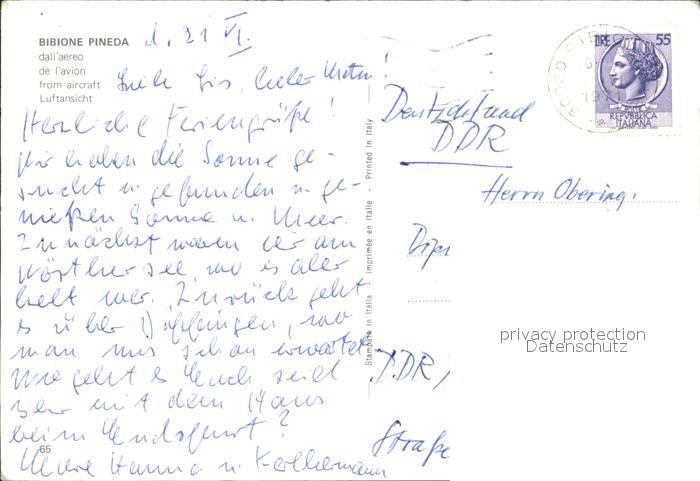 BIBIONE PINEDA
dall'aereo
de l'avion
from aircraft
Luftansicht
d. 21. VI.
Herzliche Feriengrüße!
Wir haben die Sonne ge-
sucht u. gefunden u. ge-
nießen Sonne u. Meer.
Zunächst waren wir am
Wörthersee, wo es aber
kalt war. Zurück geht
es über Döffingen, wo
man uns schon erwartet.
Wie geht es Euch, seid
Ihr mit dem Haus
beim Endspurt?
Eure Hanna u.
65
Stampato in Italia Imprimée en Italie Printed in Italy
LIRE 55
POSTE
REPVBBLICA
ITALIANA
Deutschland
DDR
Herrn Obering.
DDR,
Straße
privacy protection
Datenschutz